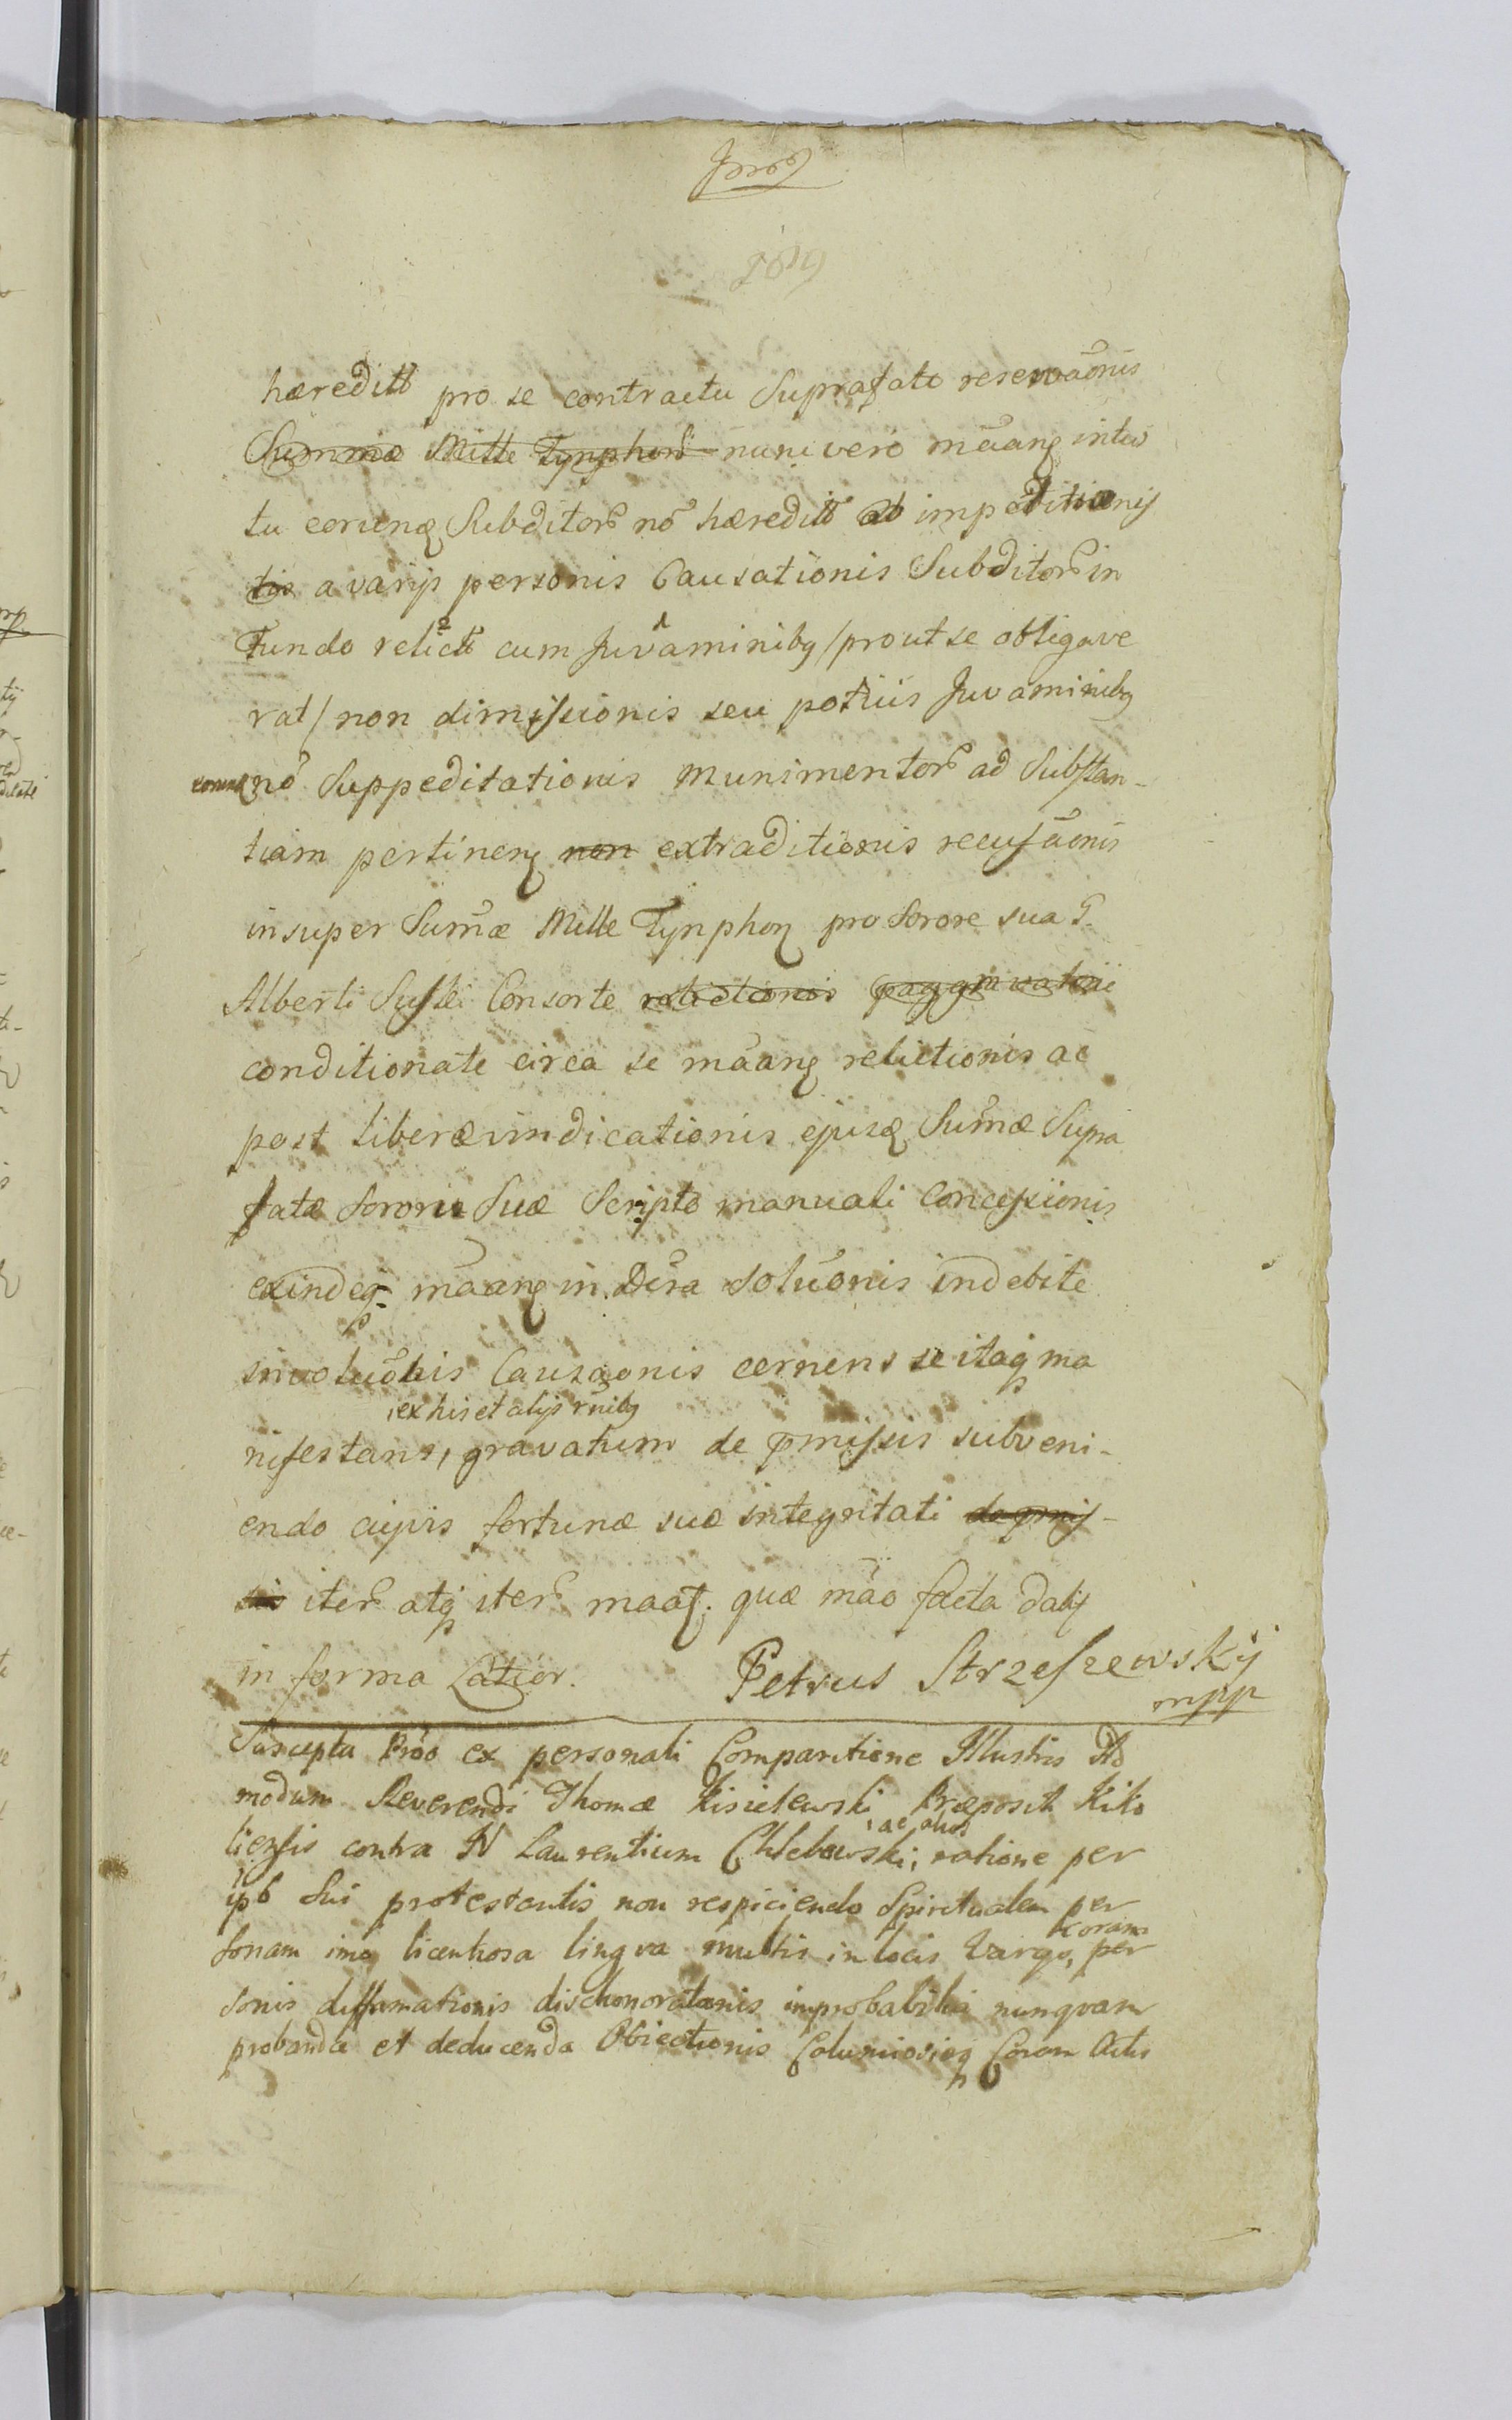 hæreditt pro se contractu Suprafato reservãonis
Summæ Mille Tynphonū nunc vero mãanq intui
tu eorunq Subditor nõ hæreditt ab impeditionis
tis a varijs personis Causationis Subditor in
Fundo relict cum Juvaminibq /prout se obligave
rat/ non dimissionis seu potius Juvaminibq
eorunq nõ Suppeditationis munimentor ad Substan-
tiam pertinenq non extraditionis recusãonis
insuper Sumæ Mille Tynphonq pro Sorore sua G.
Alberti Consorte relictionis
conditionate circa se mãanq relictionis ac
post liberæ vindicationis ejusq Sumæ Supra
fatæ Sororis Suæ Scripto manuali Concessionis
exindeq mãanq in Dcra Soluõnis indebite
involuõnis Causãonis cernens se itaq ma
, ex his et alijs rnibq
nifestans, gravatum de pmissis subveni-
endo cujvis fortunæ suæ integritati de pmis-
sis iter atq iter maaf. quæ mão facta dalij
in forma Latior. Petrus Strzeszewskij
mpp
Suscepta Prõo ex personali Comparitione Illustris Ad
modum Reverendi Thomæ Kisielewski Præposit Kiko
, ac alios
liensis contra N Laurentium Chlebowski, ratione per
ipb Sui protestantis non respiciendo Spiritualem per
coram
sonam imo licentiosa lingva multis in locis Vargo, per
sonis diffamationis dischonorationis improbabilis nunqvam
probandæ et deducenda Obiectionis Coram Actis